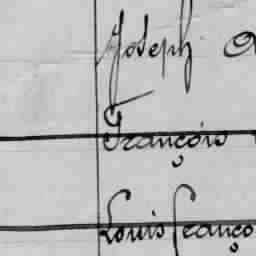 Joseph
François
Louis franço